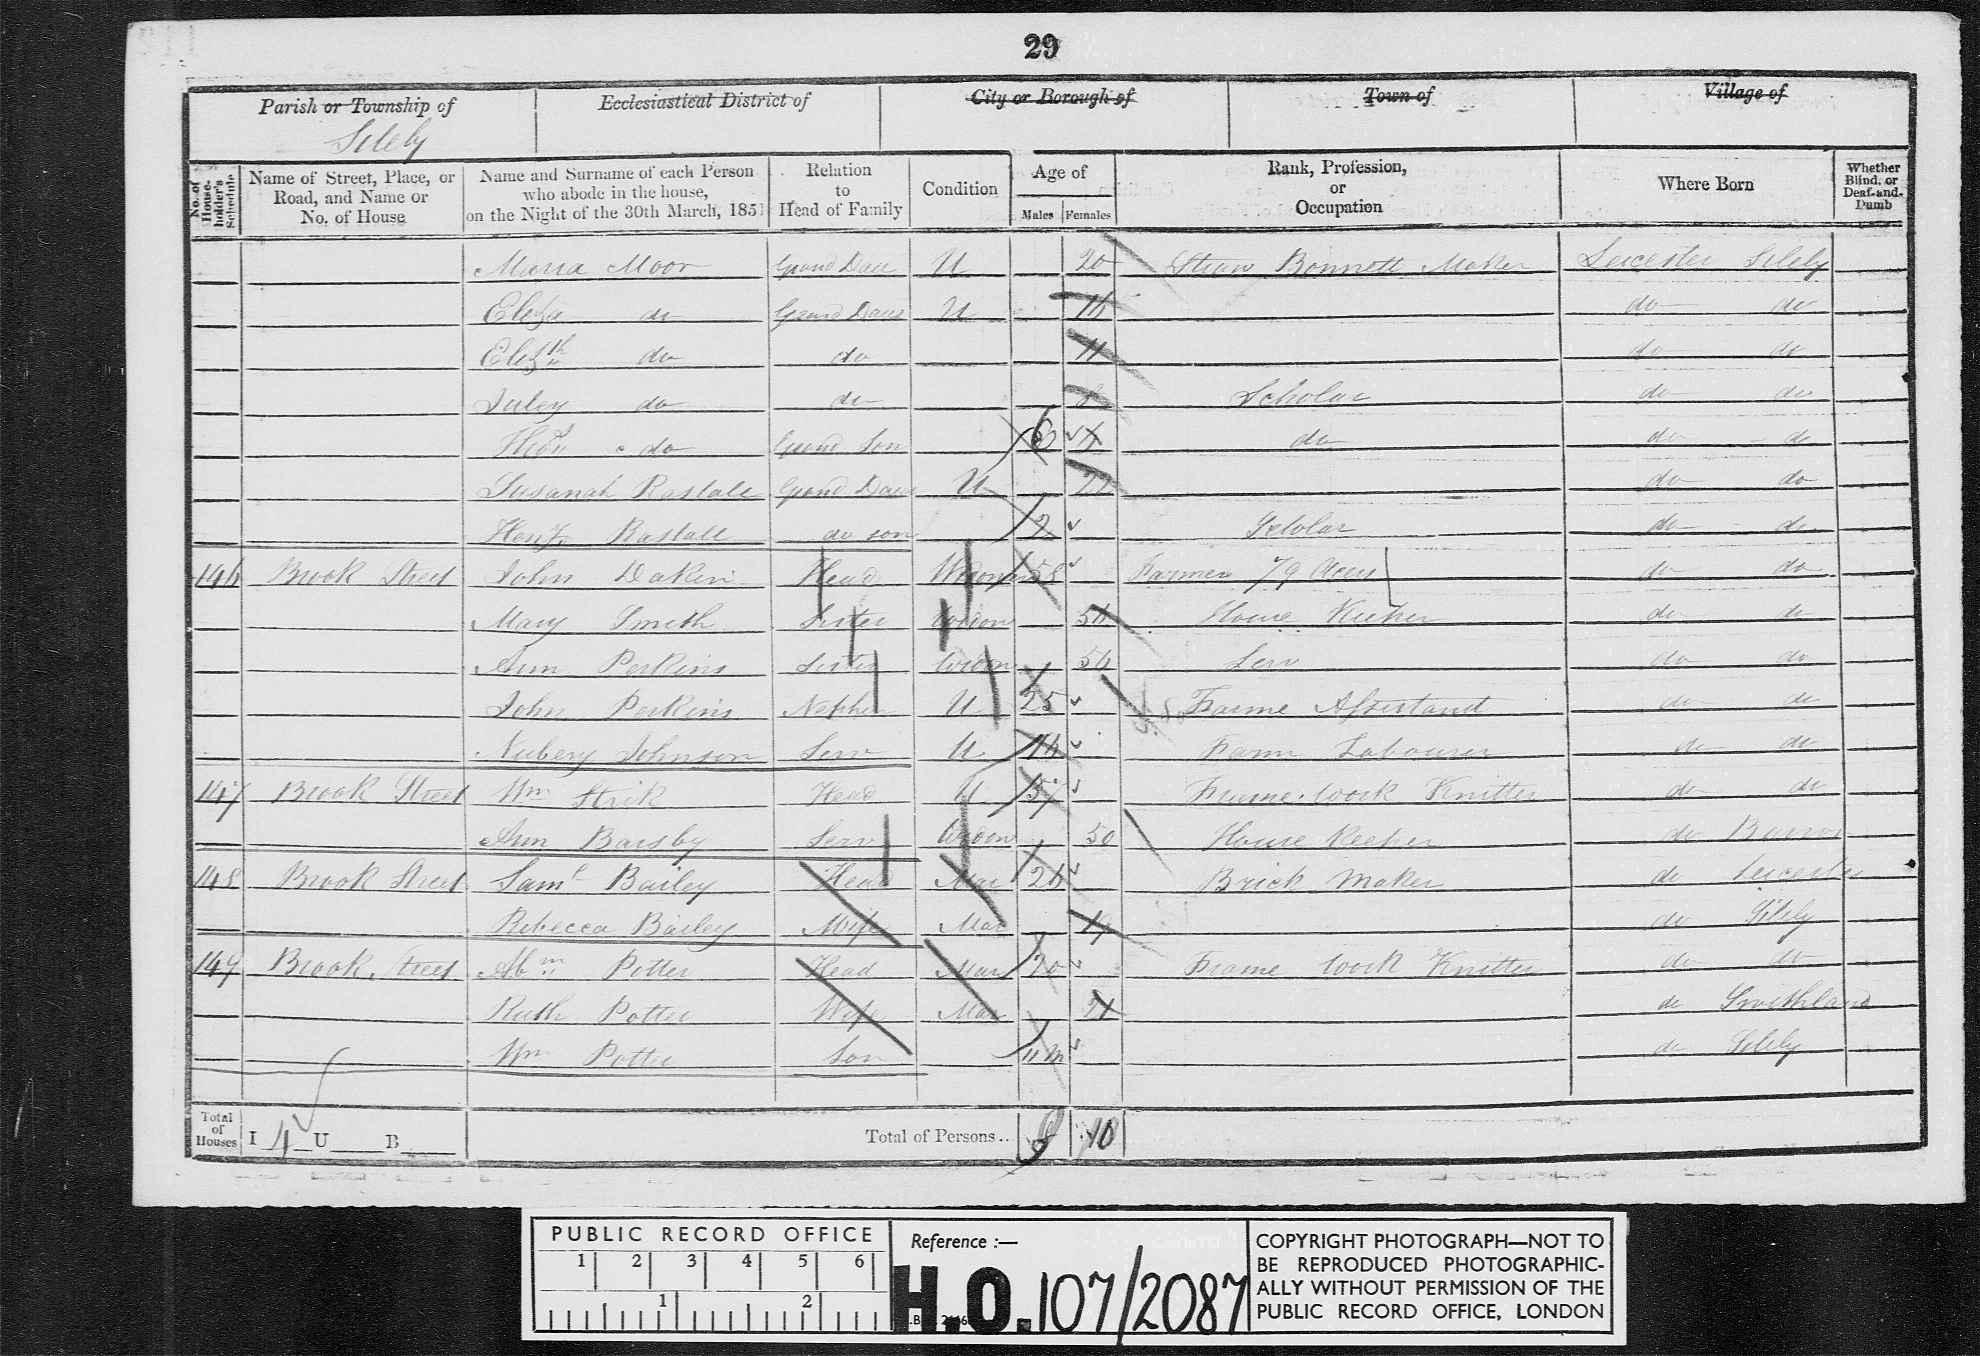 29
Parish or Township of Ecclesiastical District of City or Borough of Town of Village of
Sileby
No. of House-holder's Schedule Name of Street, Place, or Road, and Name or No. of House Name and Surname of each Person who abode in the house, on the Night of the 30th March, 1851 Relation to Head of Family Condition Age of Males Females Rank, Profession, or Occupation Where Born Whether Blind, or Deaf-and-Dumb
Maria Moor Grand Daur U 20 Straw Bonnett Maker Leicester Sileby
Eliza do Grand Daur U 16 do do
Elizth do do 11 do do
Juley do do 8 Scholar do do
do Grand Son do do do
Susanah Rastall Grand Daur U do do
Rastall do son 2 Scholar do do
146 Brook Street John Dakin Head Widower 58 Farmer 79 Acres do do
Mary Smith Sister Widow 56 House Keeper do do
Ann Perkins Sister Widow 56 Serv do do
John Perkins Nephew U 25 Farme Assistand do do
Nubery Johnson Serv U 16 Farm Labourer do do
147 Brook Street Wm Head U 57 Frame work Knitter do do
Ann Barsby Serv Widow 50 House Keeper do Barrow
148 Brook Street Saml Bailey Head Mar 26 Brick Maker do Leicester
Rebecca Bailey Wife Mar 19 do Sileby
149 Brook Street Abm Potter Head Mar 20 Frame Work Knitter do do
Ruth Potter Wife Mar 21 do Swithland
Wm Potter Son 11 m do Sileby
Total of Houses I 4 U B Total of Persons.. 9 10
PUBLIC RECORD OFFICE
1 2 3 4 5 6
1 2
Reference :—
H.O. 107/2087
COPYRIGHT PHOTOGRAPH—NOT TO
BE REPRODUCED PHOTOGRAPHIC-
ALLY WITHOUT PERMISSION OF THE
PUBLIC RECORD OFFICE, LONDON